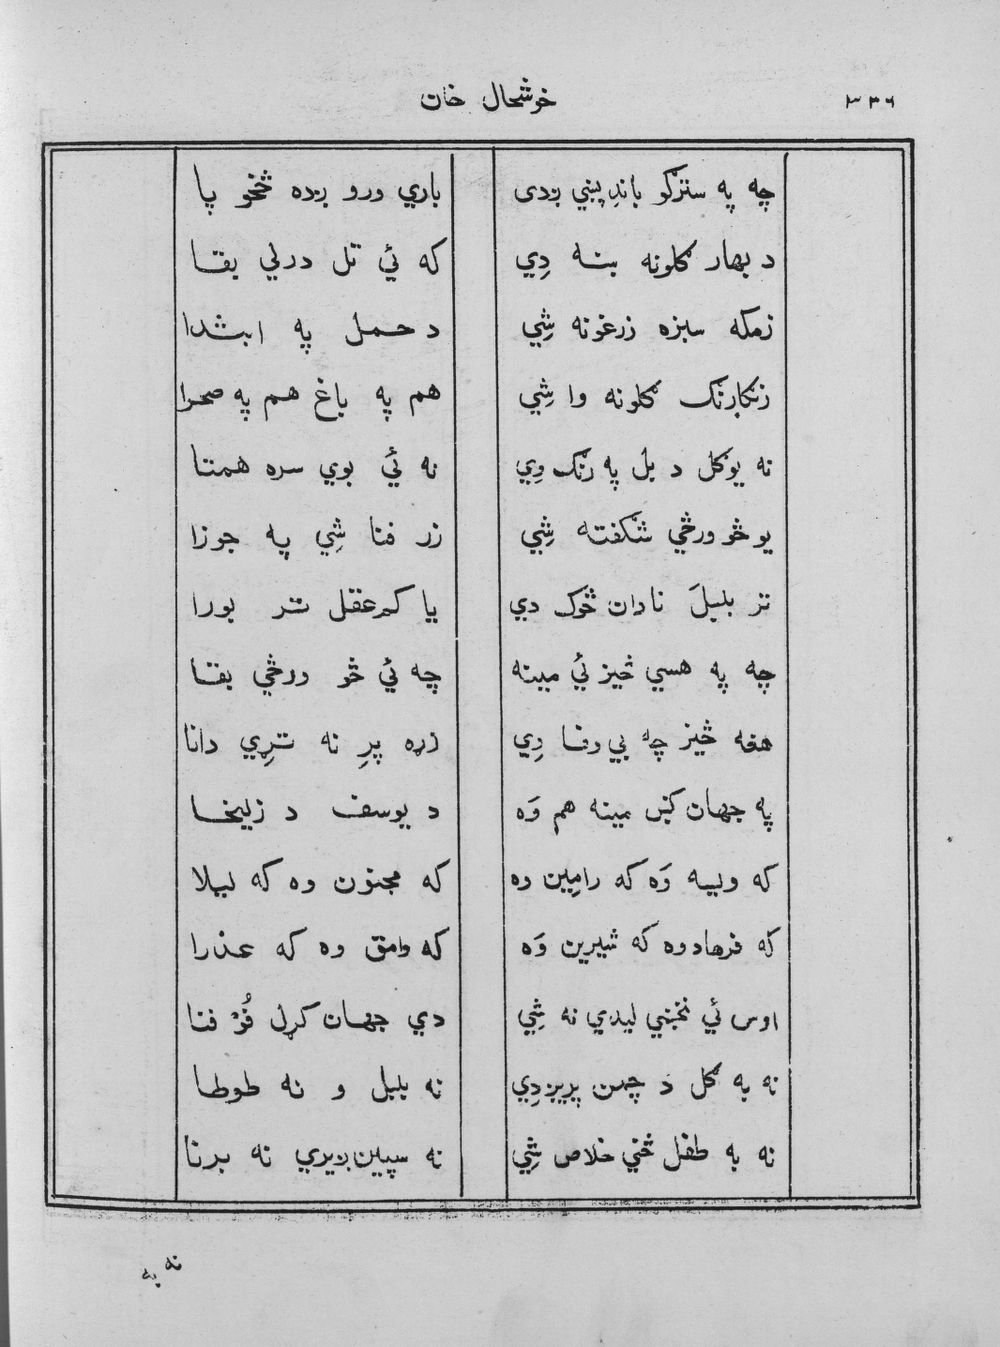 خوشحال خان
٣٣٦
چه په سترګو باندِ پښي ږدی باري ورو ږده څخو پا
د بهار ګلونه بنه دِي که ئي تل درلي بقا
زمکه سبزه زرغونه شِي د حمل په ابتدا
رنګارنګ ګلونه وا شِي هم په باغ هم په صحرا
نه يو ګل د بل په رنګ وِي نه ئي بوي سره همتا
يو څو ورځي شګفته شِي زر فنا شِي په جوزا
تر بلبلَ نادان څوک دي يا کم عقل تر بورا
چه په هسي څيز ئي مينه چه ئي څو ورځي بقا
هغه څيز چه بي وفا دِي زړه پرِ نه تړِي دانا
په جهان کښِ مينه هم وَه د يوسف د زليخا
که ويسه وَه که رامِين وه که مجنون وه که ليلا
که فرهاد وه که شيرين وَه که وامق وه که عذرا
اوس ئي نخښي ليدي نه شِي دي جهان کړل فنا
نه به ګل د چمن پريږدِي نه بلبل و نه طوطا
نه به طفل ځني خلاص شِي نه سپين ږيري نه برنا
نه به